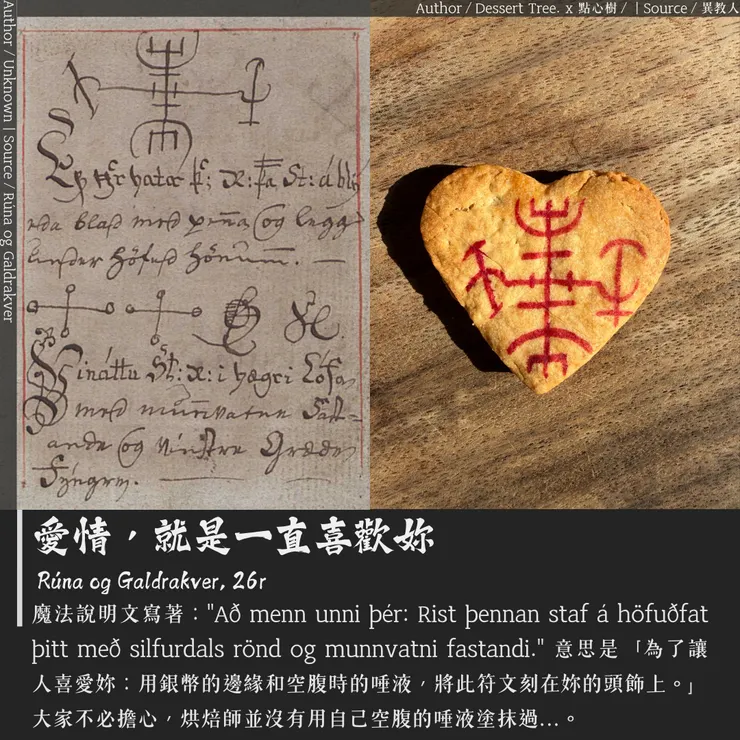 Author / Dessert Tree. x 點心樹 / | Source / 異教人
Author / Unknown | Source / Rúna og Galdrakver
St: á blý
eda blad med penna og legg
under höfud hönum. —
Vináttu St: x: i hægri Lófa
med munnvatne fast=
ande og vinstre Græde
愛情，就是一直喜歡妳
Rúna og Galdrakver, 26r
魔法說明文寫著："Að menn unni þér: Rist þennan staf á höfuðfat
þitt með silfurdals rönd og munnvatni fastandi." 意思是「為了讓
人喜愛妳：用銀幣的邊緣和空腹時的唾液，將此符文刻在妳的頭飾上。」
大家不必擔心，烘焙師並沒有用自己空腹的唾液塗抹過...。